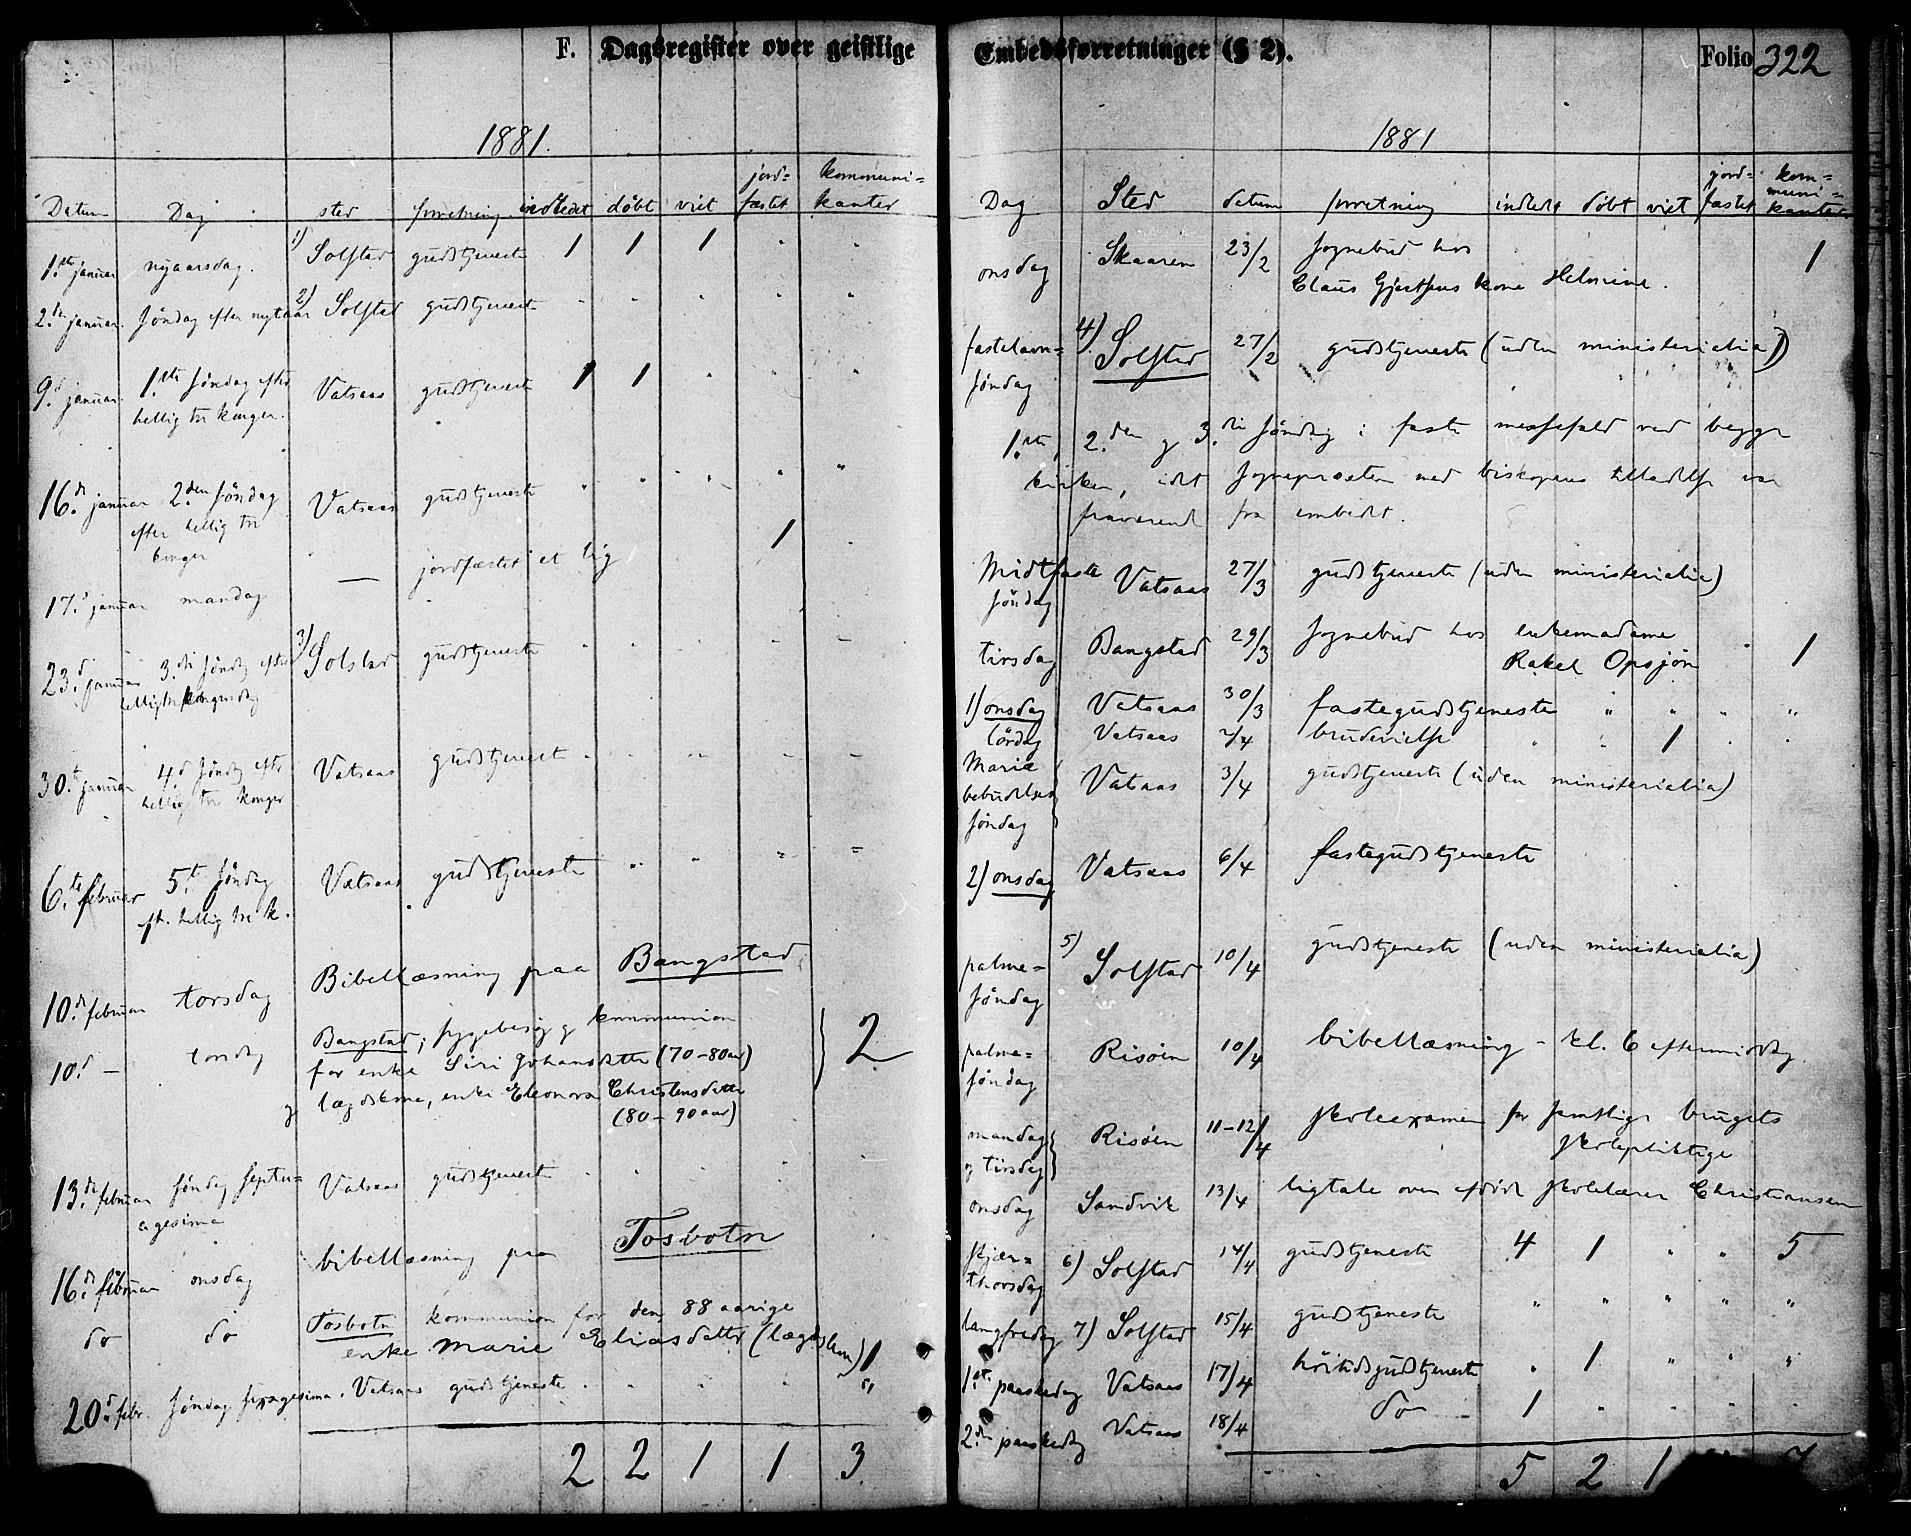 F. Dagsregister over geistlige
1881.
Datum Dag sted forretning indledet døbt viet jord=fæstet kommuni=kanter
1.ste januar nyaarsdag. 1) Solstad gudstjeneste 1 1 1 " "
2.den januar. søndag efter nytaar 2) Solstad gudstjeneste " " " " "
9.d januar. 1.ste søndag efter Vatsaas gudstjeneste 1 1 " " "
hellig tre konger.
16.d januar 2.den søndag Vatsaas gudstjeneste " " " " "
efter hellig tre
konger
17.d januar mandag — jordfæstet et lig 1 "
23.d januar 3.die søndag efter 3) Solstad gudstjeneste " " " " "
hellig tre kongersdag
30.te januar 4.d søndag efter Vatsaas gudstjeneste " " " " "
hellig tre konger
6.te februar 5.te søndag Vatsaas gudstjeneste " " " "
eft. hellig tre k.
10.d februar torsdag Bibellæsning paa Bangstad
10.d — torsdag Bangstad; sygebesøg og kommunion
for enke Siri Johansdatter (70-80 aar) } 2
og lægdslem, enke Eleonora Christensdatter
(80-90 aar)
13.de februar søndag septu= Vatsaas gudstjeneste " " " " "
agesima
16.d februar onsdag bibellæsning paa Tosbotn
do do Tosbotn kommunion for den 88 aarige
enke Marie Eliasdatter (lægdslem) 1
20.d febr. søndag sexagesima. Vatsaas gudstjeneste " " " " "
2 2 1 1 3.
Embedsforretninger (§ 2). Folio 322
1881
Dag Sted datum forretning indledt døbt viet jord=fæstet kom=muni=kanter
onsdag Skaaren 23/2 sognebud hos 1
Claus Gjertsens kone Helmine.
fastelavn= 4) Solstad 27/2 gudstjeneste (uden ministerialia)
søndag
1.ste, 2.den og 3.die søndag i faste messefald ved begge
kirker, idet sognepræsten med biskopens tilladelse var
fraværende fra embedet.
Midtfaste Vatsaas 27/3 gudstjeneste (uden ministerialia)
søndag
tirsdag Bangstad 29/3 sognebud hos enkemadame " 1
Rakel Opsjøn
1) onsdag Vatsaas 30/3 fastegudstjeneste " " " "
lördag Vatsaas 2/4 brudevielse " " 1 " "
Mariæ Vatsaas 3/4 gudstjeneste (uden ministerialia)
bebudelses
søndag
2) onsdag Vatsaas 6/4 fastegudstjeneste
palme= 5) Solstad 10/4 gudstjeneste (uden ministerialia)
søndag
palme= Risøen 10/4 bibellæsning - kl. 6 eftermiddag
søndag
mandag Risøen 11-12/4 skoleexamen for samtlige brugets
og tirsdag skolepliktige
onsdag Sandvik 13/4 ligtale over afdøde skolelærer Christiansen
skjær= 6) Solstad 14/4 gudstjeneste 4 1 " " 5
thorsdag
langfredag 7) Solstad 15/4 gudstjeneste " " " " "
1.ste paaskedag Vatsaas 17/4 høitidsgudstjeneste " 1 " " "
2.den paaskedag Vatsaas 18/4 do 1 " " " "
5 2 1 7